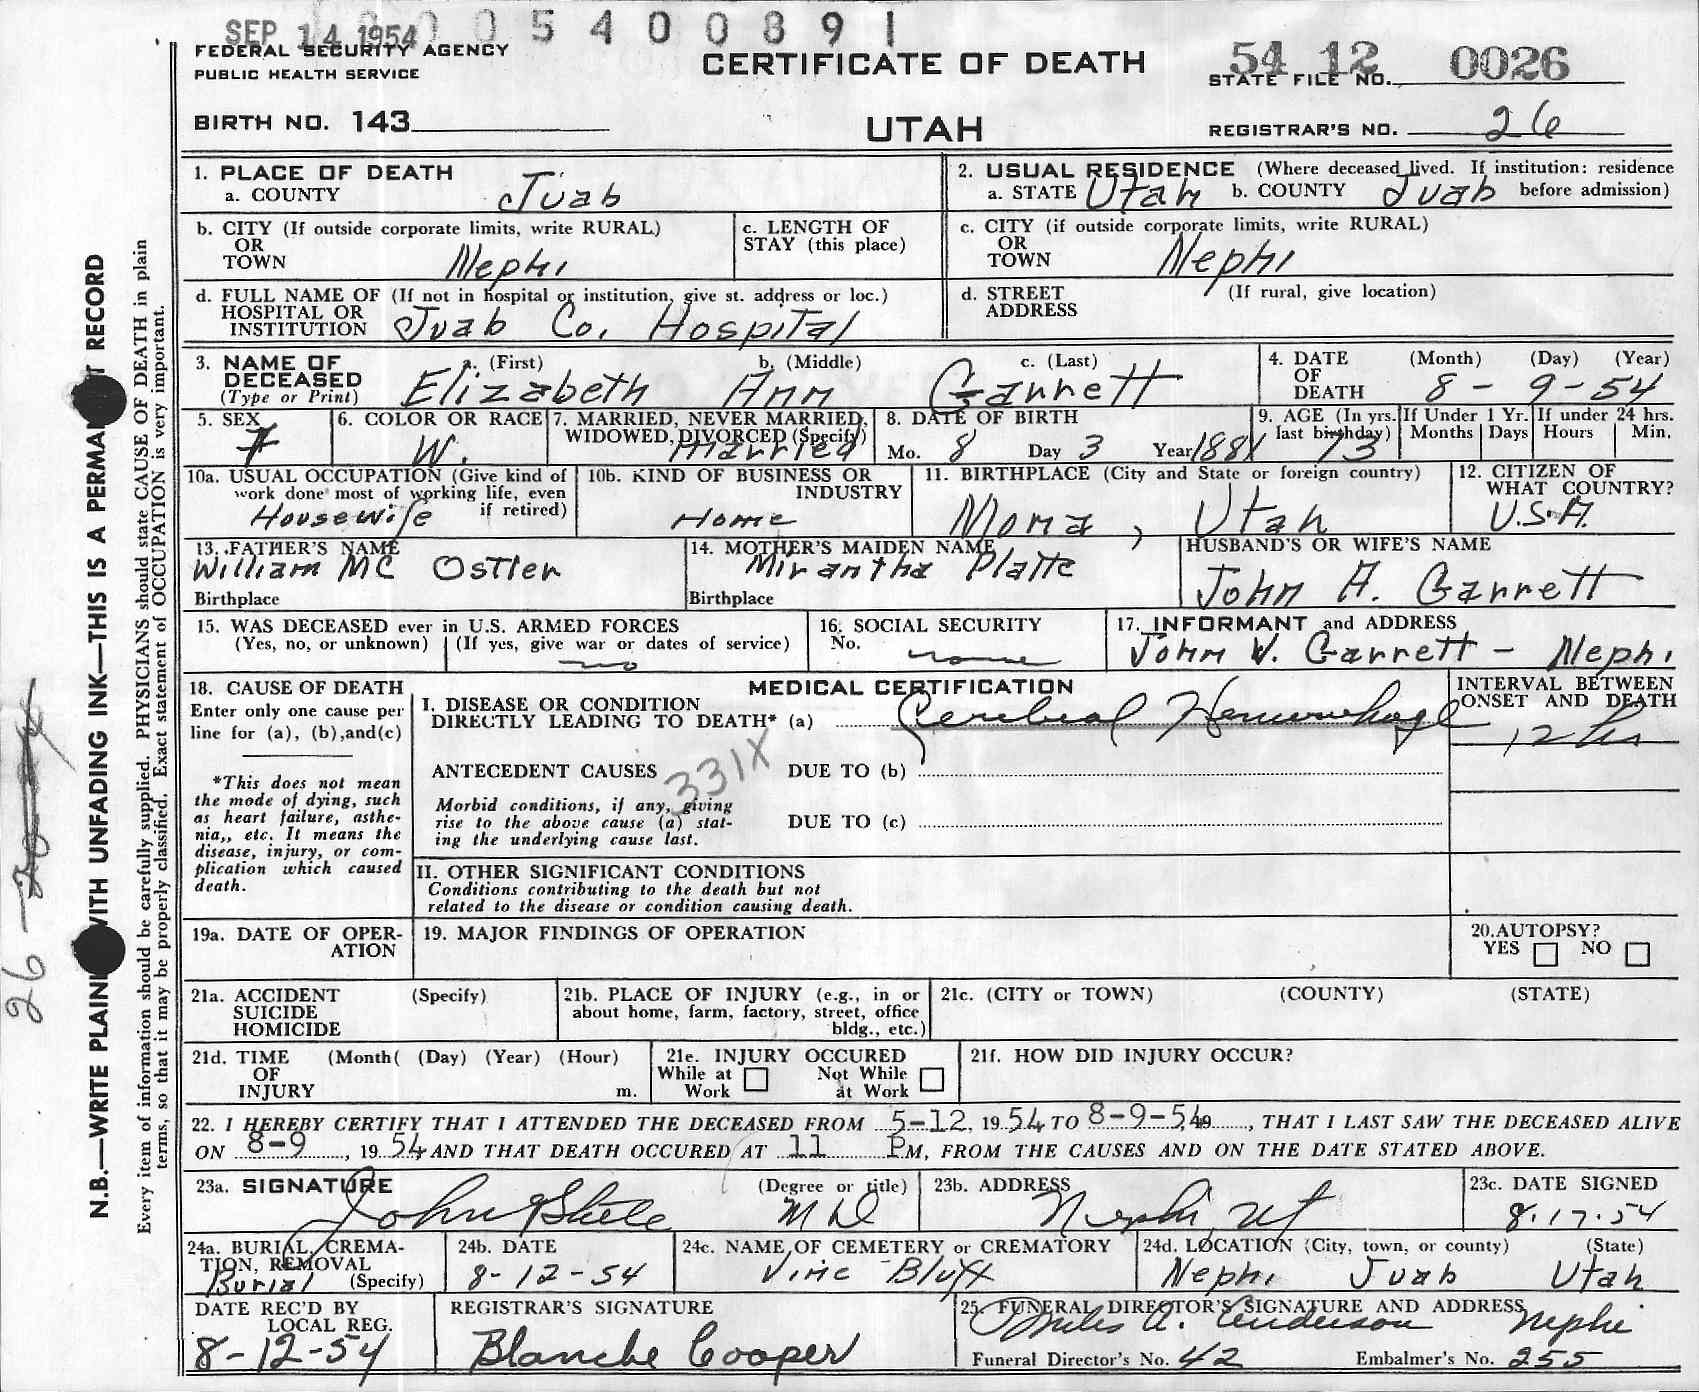 SEP 14 1954 0 0 5 4 0 0 8 9 1
FEDERAL SECURITY AGENCY
PUBLIC HEALTH SERVICE
CERTIFICATE OF DEATH
54 12 0026
STATE FILE NO.
BIRTH NO. 143
UTAH
REGISTRAR'S NO. 26
1. PLACE OF DEATH
a. COUNTY Juab
2. USUAL RESIDENCE (Where deceased lived. If institution: residence
a. STATE Utah b. COUNTY Juab before admission)
b. CITY (If outside corporate limits, write RURAL)
OR
TOWN Nephi
c. LENGTH OF
STAY (this place)
c. CITY (if outside corporate limits, write RURAL)
OR
TOWN Nephi
d. FULL NAME OF (If not in hospital or institution, give st. address or loc.)
HOSPITAL OR
INSTITUTION Juab Co. Hospital
d. STREET (If rural, give location)
ADDRESS
3. NAME OF a. (First) b. (Middle) c. (Last)
DECEASED
(Type or Print) Elizabeth Ann Garrett
4. DATE (Month) (Day) (Year)
OF
DEATH 8-9-54
5. SEX
F
6. COLOR OR RACE
W.
7. MARRIED, NEVER MARRIED,
WIDOWED, DIVORCED (Specify)
Married
8. DATE OF BIRTH
Mo. 8 Day 3 Year 1881
9. AGE (In yrs.
last birthday) 73
If Under 1 Yr.
Months Days
If under 24 hrs.
Hours Min.
10a. USUAL OCCUPATION (Give kind of
work done most of working life, even
if retired)
Housewife
10b. KIND OF BUSINESS OR
INDUSTRY
Home
11. BIRTHPLACE (City and State or foreign country)
Mona, Utah
12. CITIZEN OF
WHAT COUNTRY?
U.S.A.
13. FATHER'S NAME
William Mc Ostler
Birthplace
14. MOTHER'S MAIDEN NAME
Mirantha Platte
Birthplace
HUSBAND'S OR WIFE'S NAME
John A. Garrett
15. WAS DECEASED ever in U.S. ARMED FORCES
(Yes, no, or unknown) (If yes, give war or dates of service)
no
16. SOCIAL SECURITY
No. none
17. INFORMANT and ADDRESS
John W. Garrett - Nephi
18. CAUSE OF DEATH
Enter only one cause per
line for (a), (b), and (c)
*This does not mean
the mode of dying, such
as heart failure, asthe-
nia,, etc. It means the
disease, injury, or com-
plication which caused
death.
MEDICAL CERTIFICATION
I. DISEASE OR CONDITION
DIRECTLY LEADING TO DEATH* (a) Cerebral Hemorrhage
INTERVAL BETWEEN
ONSET AND DEATH
12 hrs
ANTECEDENT CAUSES 331X DUE TO (b)
Morbid conditions, if any, giving
rise to the above cause (a) stat-
ing the underlying cause last.
DUE TO (c)
II. OTHER SIGNIFICANT CONDITIONS
Conditions contributing to the death but not
related to the disease or condition causing death.
19a. DATE OF OPER-
ATION
19. MAJOR FINDINGS OF OPERATION
20. AUTOPSY?
YES NO
21a. ACCIDENT (Specify)
SUICIDE
HOMICIDE
21b. PLACE OF INJURY (e.g., in or
about home, farm, factory, street, office
bldg., etc.)
21c. (CITY or TOWN) (COUNTY) (STATE)
21d. TIME (Month( (Day) (Year) (Hour)
OF
INJURY m.
21e. INJURY OCCURED
While at Not While
Work at Work
21f. HOW DID INJURY OCCUR?
22. I HEREBY CERTIFY THAT I ATTENDED THE DECEASED FROM 5-12, 1954 TO 8-9-54, 19, THAT I LAST SAW THE DECEASED ALIVE
ON 8-9, 1954, AND THAT DEATH OCCURED AT 11 PM, FROM THE CAUSES AND ON THE DATE STATED ABOVE.
23a. SIGNATURE (Degree or title)
John MD
23b. ADDRESS
Nephi, Ut
23c. DATE SIGNED
8.17.54
24a. BURIAL, CREMA-
TION, REMOVAL
Burial (Specify)
24b. DATE
8-12-54
24c. NAME OF CEMETERY or CREMATORY
Vine Bluff
24d. LOCATION (City, town, or county) (State)
Nephi Juab Utah
DATE REC'D BY
LOCAL REG.
8-12-54
REGISTRAR'S SIGNATURE
Blanche Cooper
25. FUNERAL DIRECTOR'S SIGNATURE AND ADDRESS
Miles A. Anderson Nephi
Funeral Director's No. 42 Embalmer's No. 255
N.B.—WRITE PLAINLY WITH UNFADING INK—THIS IS A PERMANENT RECORD
Every item of information should be carefully supplied. PHYSICIANS should state CAUSE OF DEATH in plain
terms, so that it may be properly classified. Exact statement of OCCUPATION is very important.
26